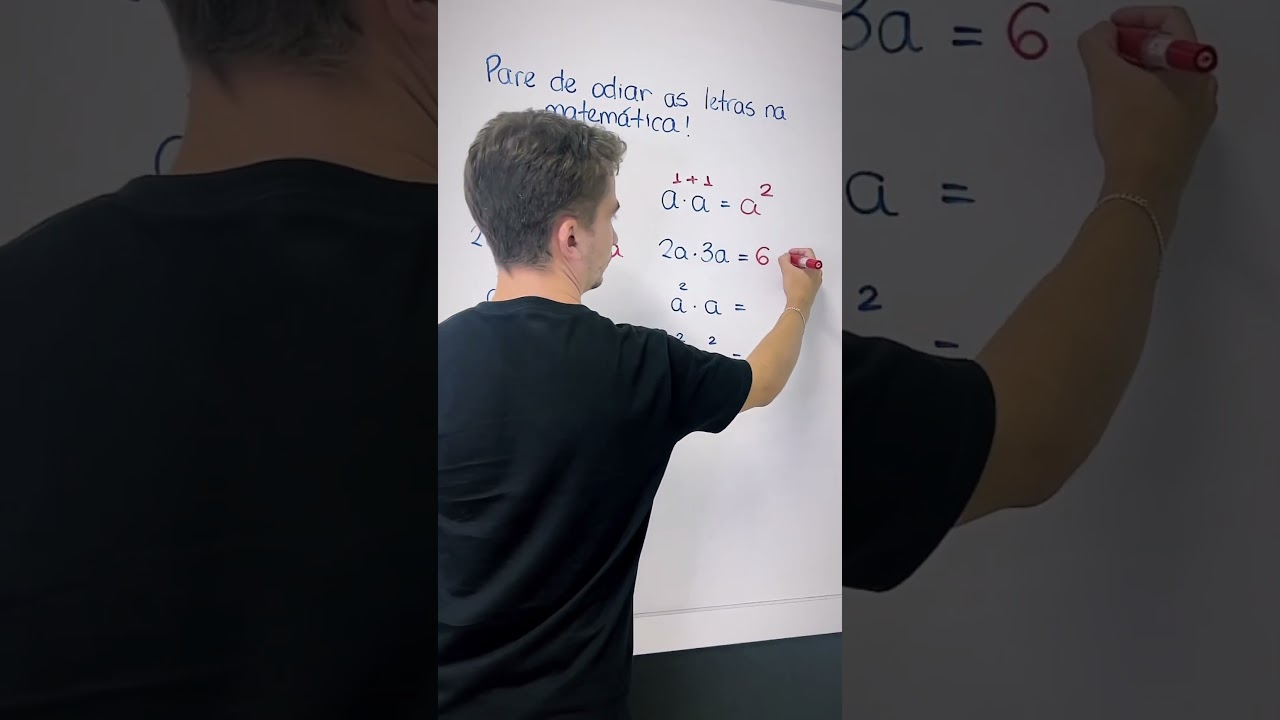 Pare de odiar as letras na
matemática!
1+1
a·a = a²
2a·3a = 6
a²·a =